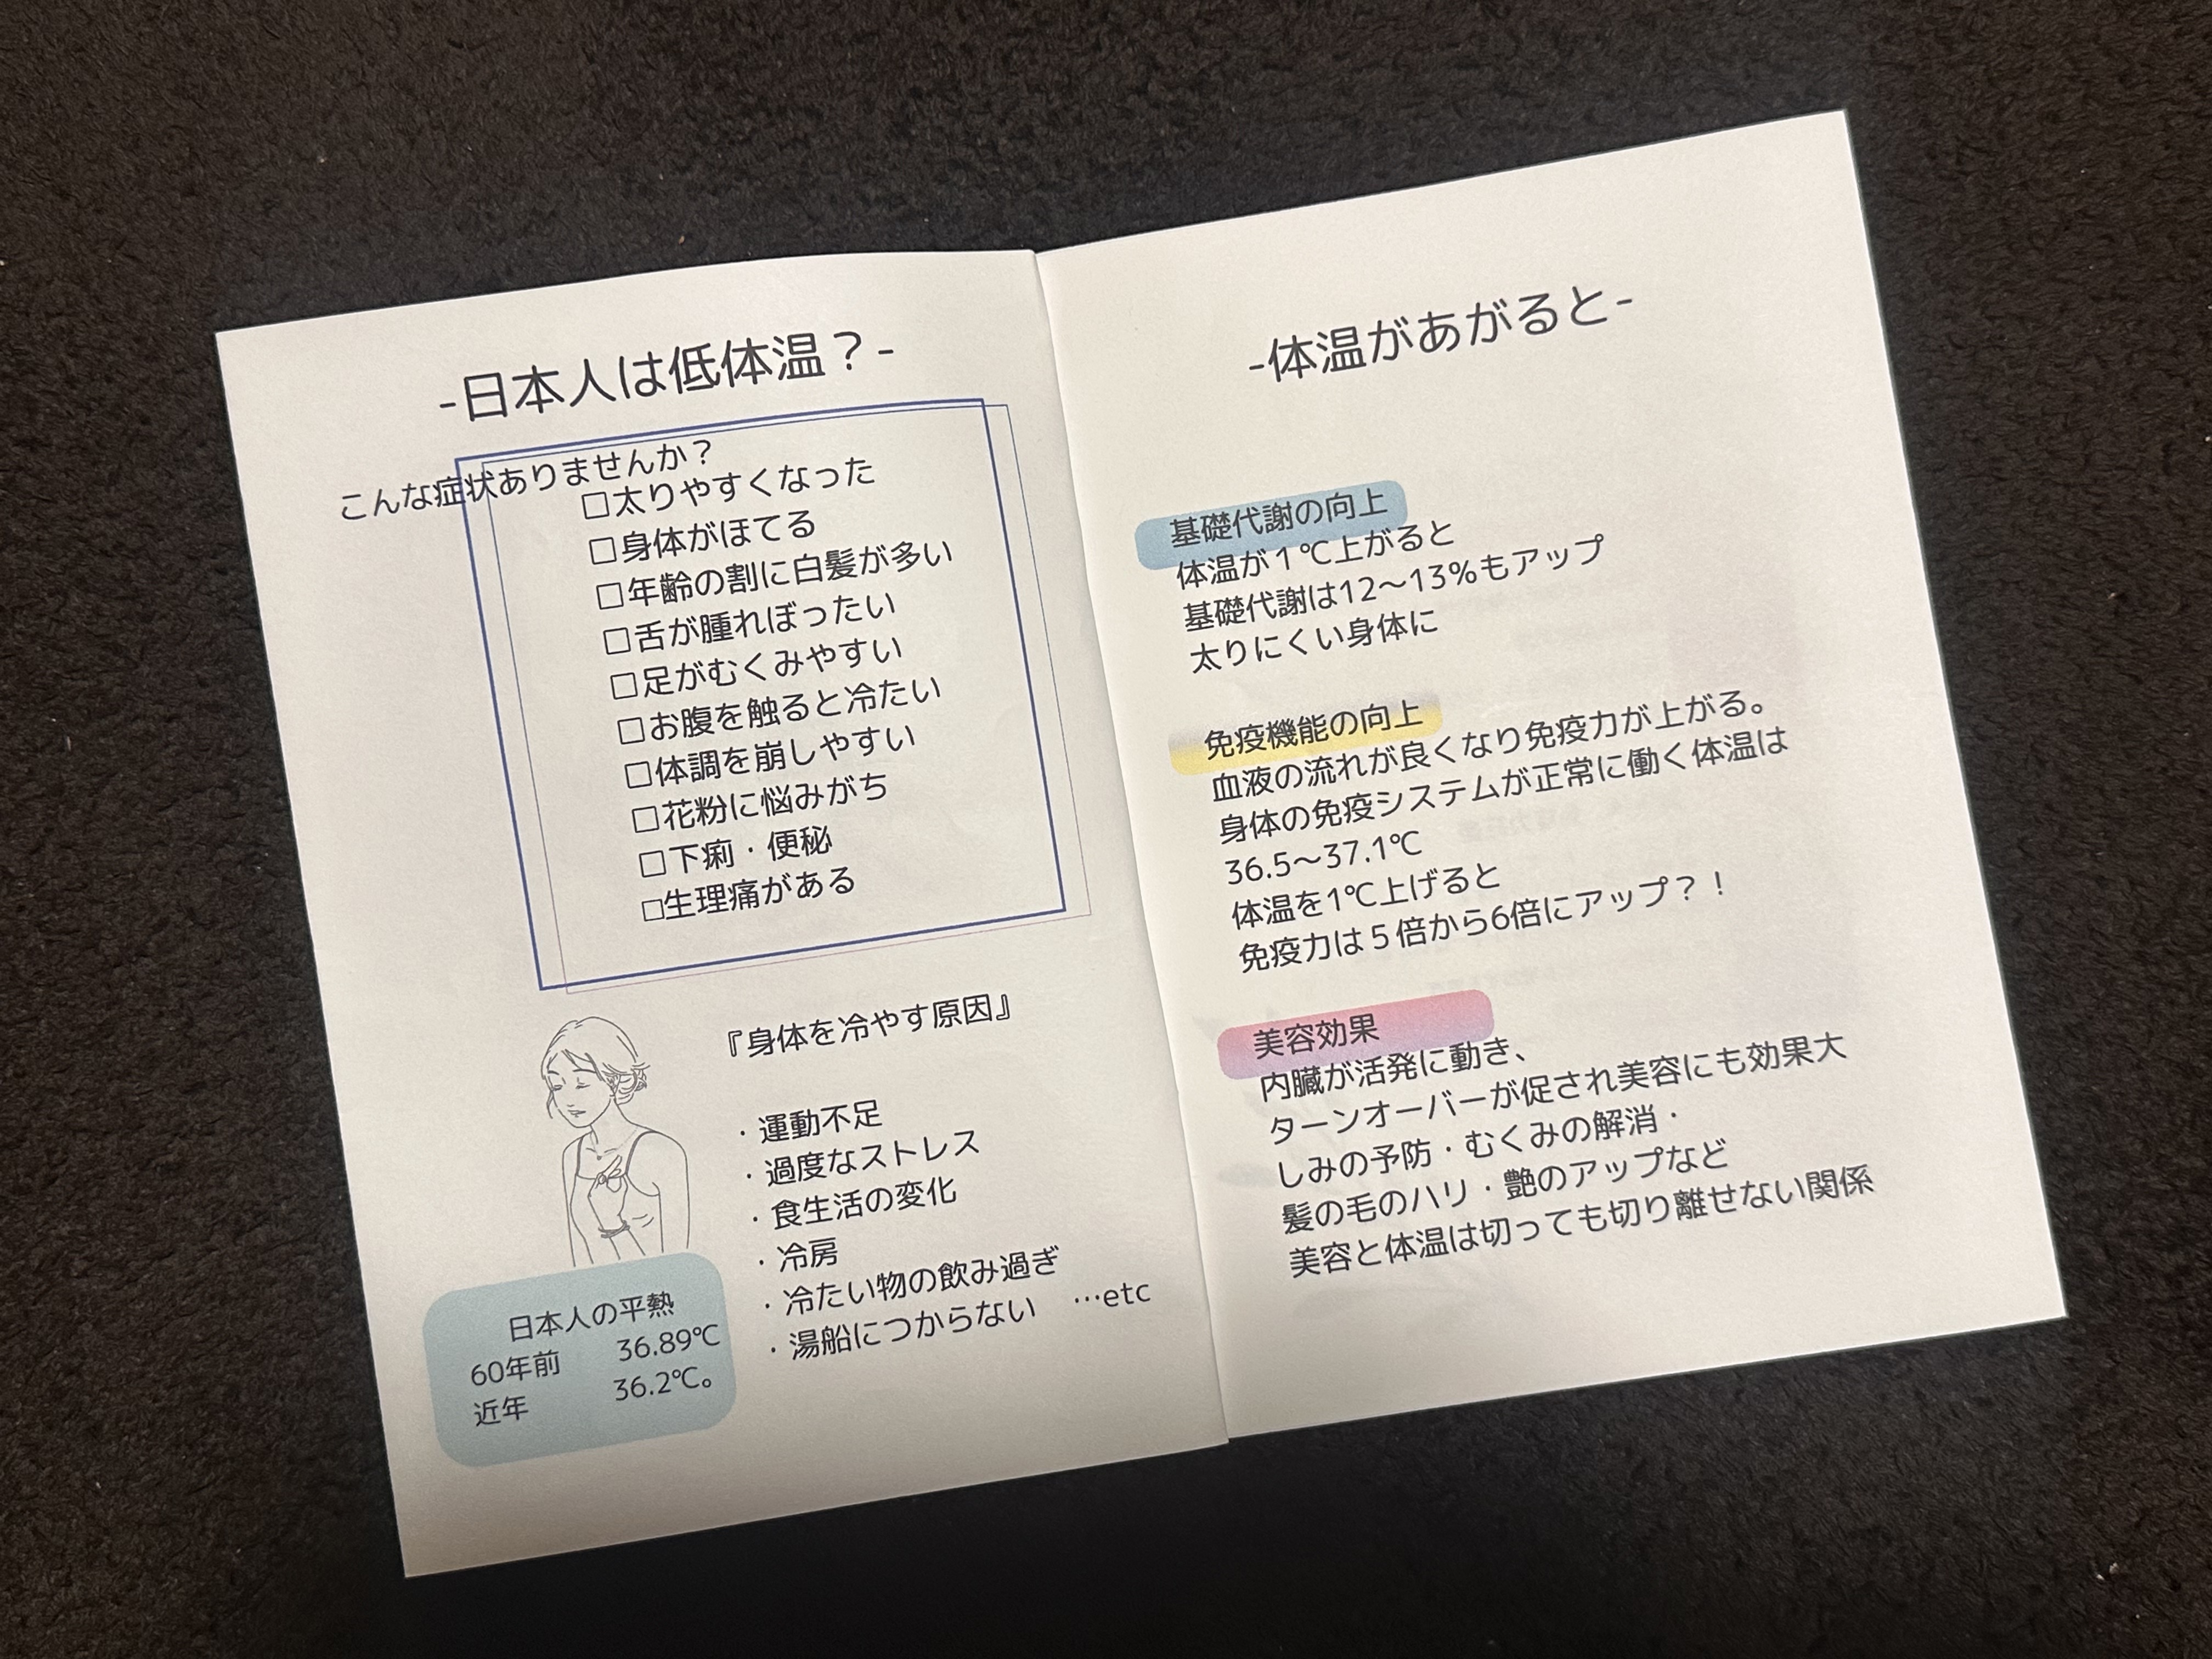 -日本人は低体温？-
こんな症状ありませんか？
□太りやすくなった
□身体がほてる
□年齢の割に白髪が多い
□舌が腫れぼったい
□足がむくみやすい
□お腹を触ると冷たい
□体調を崩しやすい
□花粉に悩みがち
□下痢・便秘
□生理痛がある
『身体を冷やす原因』
・運動不足
・過度なストレス
・食生活の変化
・冷房
・冷たい物の飲み過ぎ
・湯船につからない　…etc
日本人の平熱
60年前　36.89℃
近年　36.2℃。
-体温があがると-
基礎代謝の向上
体温が１℃上がると
基礎代謝は12〜13%もアップ
太りにくい身体に
免疫機能の向上
血液の流れが良くなり免疫力が上がる。
身体の免疫システムが正常に働く体温は
36.5〜37.1℃
体温を1℃上げると
免疫力は５倍から6倍にアップ？！
美容効果
内臓が活発に動き、
ターンオーバーが促され美容にも効果大
しみの予防・むくみの解消・
髪の毛のハリ・艶のアップなど
美容と体温は切っても切り離せない関係